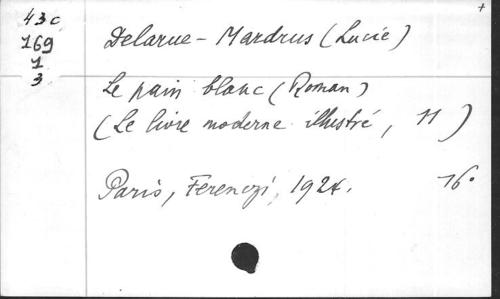 +
43c
169
1
3
Delarue-Mardrus (Lucie)
Le pain blanc (Roman)
(Le livre moderne illustré, 11)
Paris, Ferenczi, 1924. 16°